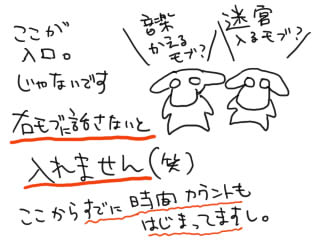 ここが
入口。
じゃないです
音楽
かえる
モブ?
迷宮
入るモブ?
右モブに話さないと
入れません(笑)
ここからすでに時間カウントも
はじまってますし。